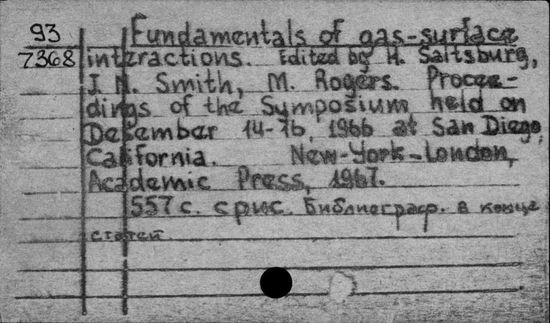 93 Fundamentals of gas-surface
7368 interactions. Edited by H. Saltsburg,
J. N. Smith, M. Rogers. Procee-
dings of the Symposium held on
December 14-16, 1966 at San Diego,
California. New-York-London,
Academic Press, 1967.
557 с. с рис. Библиограф. в конце
статей.